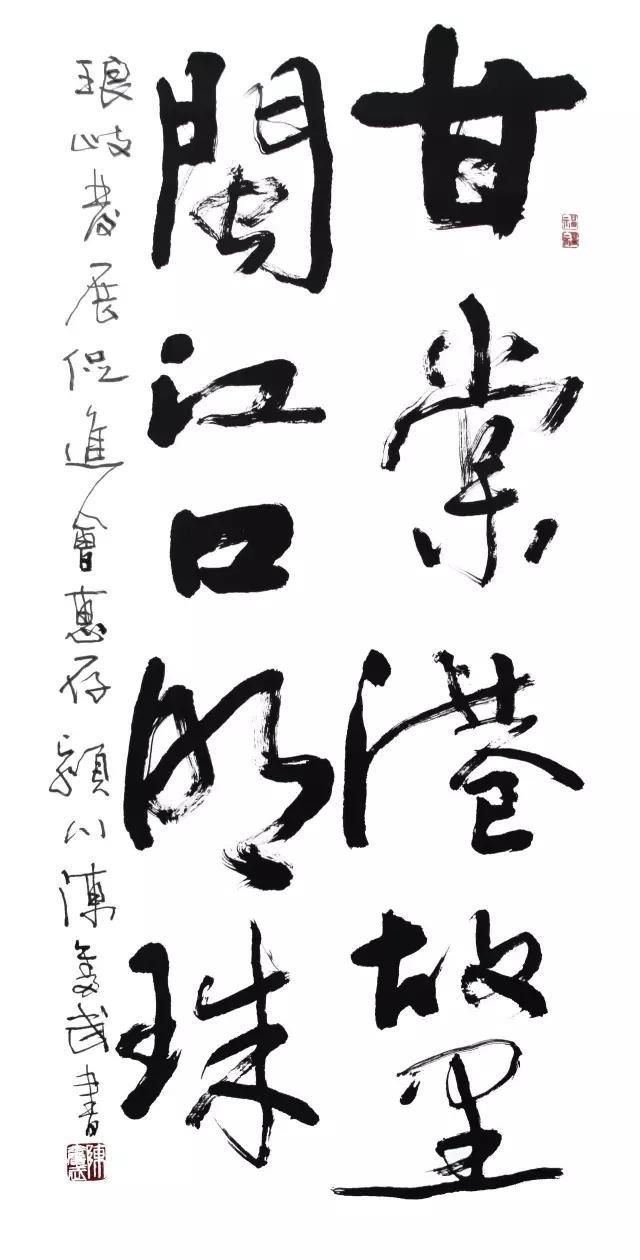 甘棠港故里
閩江口明珠
琅岐發展促進會惠存 潁川陳奮武書